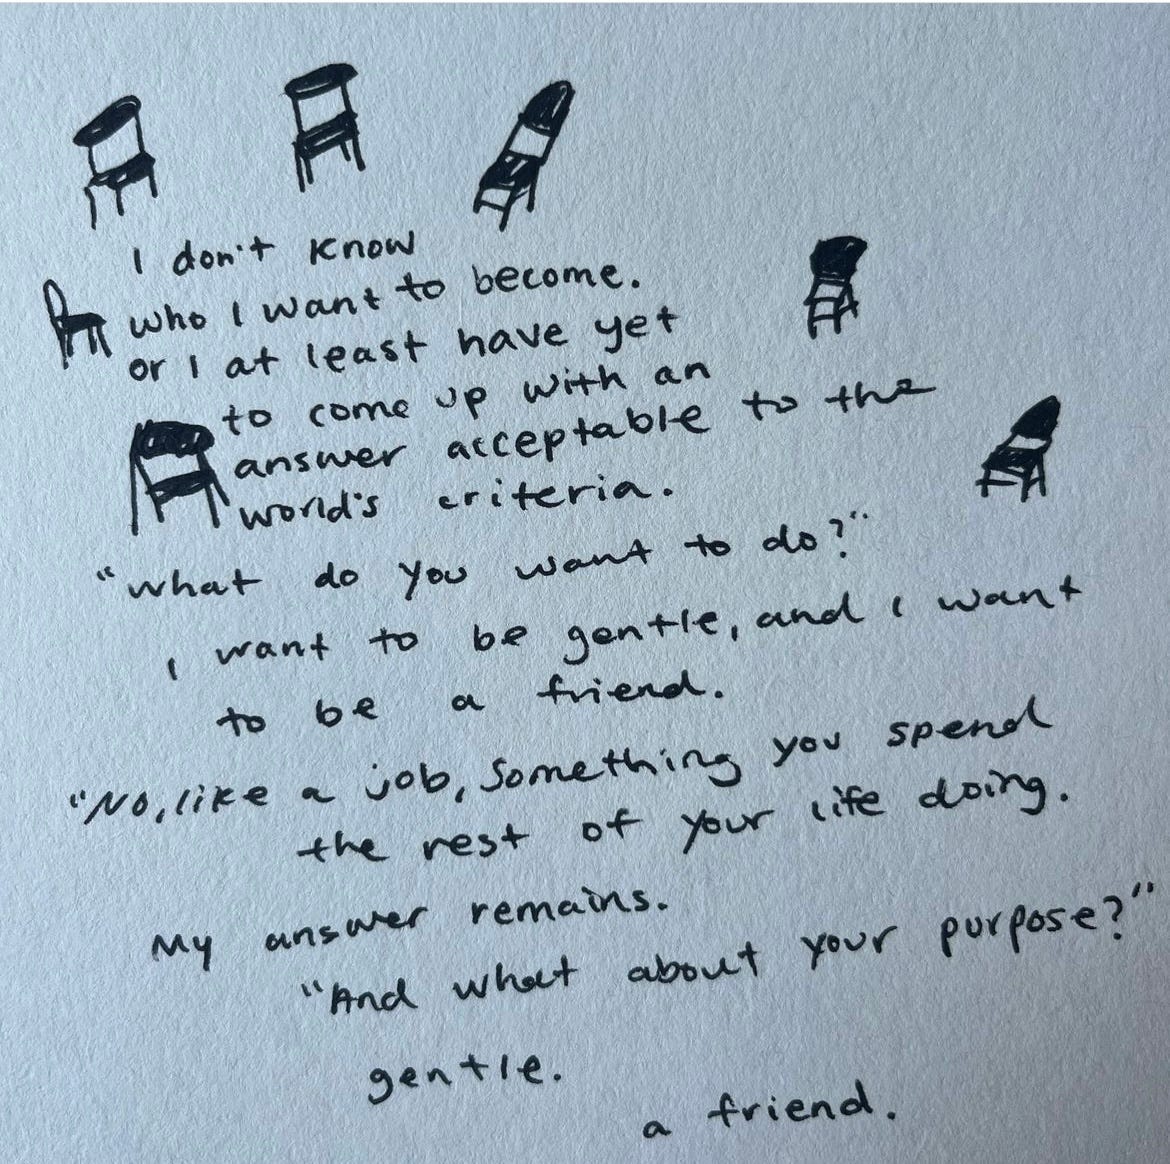 I don't know
who I want to become.
or I at least have yet
to come up with an
answer acceptable to the
world's criteria.
"What do you want to do?"
I want to be gentle, and I want
to be a friend.
"No, like a job, something you spend
the rest of your life doing.
My answer remains.
"And what about your purpose?"
gentle.
a friend.